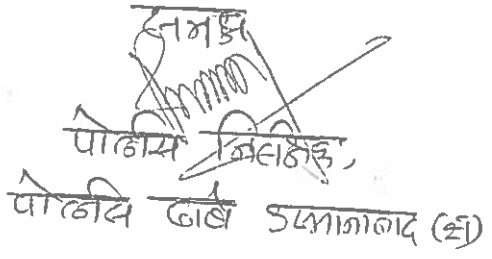 समक्ष
पोलीस निरीक्षक,
पोलीस ठाणे उस्मानाबाद (श)